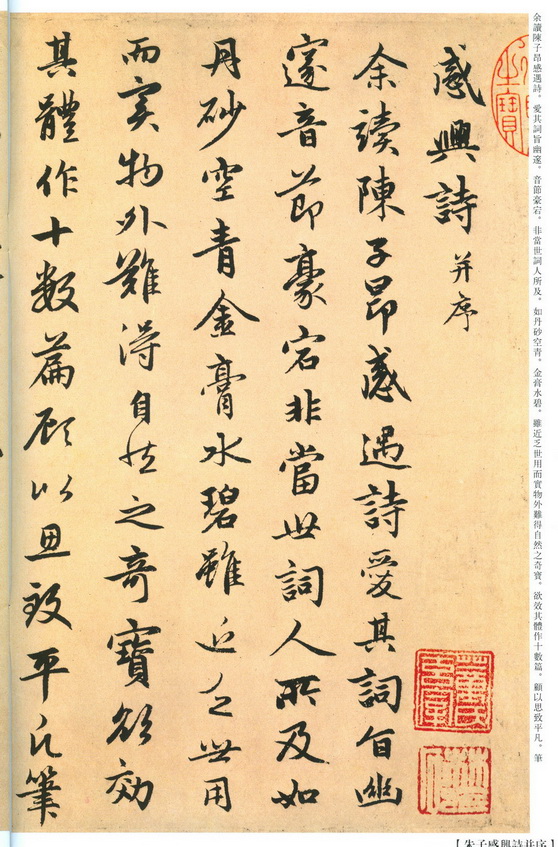 余讀陳子昂感遇詩。愛其詞旨幽邃。音節豪宕。非當世詞人所及。如丹砂空青。金膏水碧。雖近乏世用而實物外難得自然之奇寶。欲效其體作十數篇。顧以思致平凡。筆
感興詩 并序
余讀陳子昂感遇詩愛其詞旨幽
邃音節豪宕非當世詞人所及如
丹砂空青金膏水碧雖近乏世用
而实物外難得自然之奇寶欲効
其體作十数篇顧以思致平凡筆
【朱子感興詩并序】